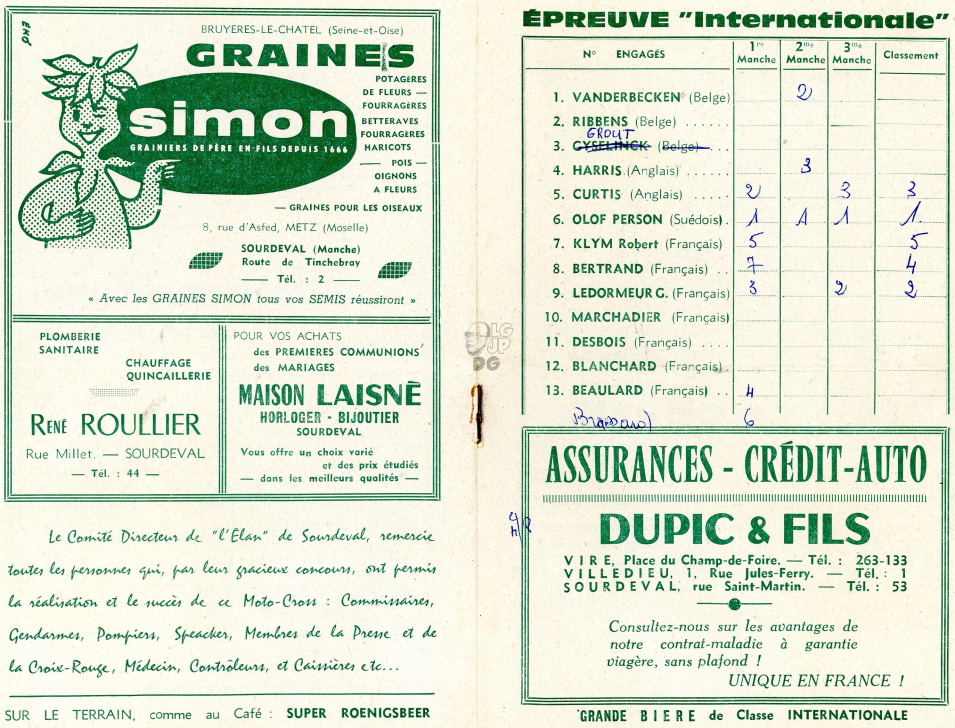 EKO
BRUYERES-LE-CHATEL (Seine-et-Oise)
GRAINES
simon
GRAINIERS DE PÈRE EN FILS DEPUIS 1666
POTAGÈRES
DE FLEURS —
FOURRAGÈRES
BETTERAVES
FOURRAGÈRES
HARICOTS
— POIS —
OIGNONS
A FLEURS
— GRAINES POUR LES OISEAUX
8, rue d'Asfed, METZ (Moselle)
SOURDEVAL (Manche)
Route de Tinchebray
— Tél. : 2 —
« Avec les GRAINES SIMON tous vos SEMIS réussiront »
PLOMBERIE
SANITAIRE
CHAUFFAGE
QUINCAILLERIE
RENÉ ROULLIER
Rue Millet. — SOURDEVAL
— Tél. : 44 —
POUR VOS ACHATS
des PREMIERES COMMUNIONS
des MARIAGES
MAISON LAISNÈ
HORLOGER - BIJOUTIER
SOURDEVAL
Vous offre un choix varié
et des prix étudiés
— dans les meilleurs qualités —
Le Comité Directeur de "l'Élan" de Sourdeval, remercie
toutes les personnes qui, par leur gracieux concours, ont permis
la réalisation et le succès de ce Moto-Cross : Commissaires,
Gendarmes, Pompiers, Speacker, Membres de la Presse et de
la Croix-Rouge, Médecin, Contrôleurs, et Caissières etc...
SUR LE TERRAIN, comme au Café : SUPER ROENIGSBEER
LG
JP
DG
ÉPREUVE "Internationale"
N° ENGAGÉS 1re Manche 2me Manche 3me Manche Classement
1. VANDERBECKEN (Belge) 2
2. RIBBENS (Belge) ......
GROUT
3. GYSELINCK (Belge) ...
4. HARRIS (Anglais) ...... 3
5. CURTIS (Anglais) ...... 2 3 3
6. OLOF PERSON (Suédois) . 1 1 1 1
7. KLYM Robert (Français) 5 5
8. BERTRAND (Français) .. 7 4
9. LEDORMEUR G. (Français) 3 2 2
10. MARCHADIER (Français)
11. DESBOIS (Français) ....
12. BLANCHARD (Français)
13. BEAULARD (Français) 4
6
ASSURANCES - CRÉDIT-AUTO
DUPIC & FILS
VIRE, Place du Champ-de-Foire. — Tél. : 263-133
VILLEDIEU, 1, Rue Jules-Ferry. — Tél. : 1
SOURDEVAL, rue Saint-Martin. — Tél. : 53
Consultez-nous sur les avantages de
notre contrat-maladie à garantie
viagère, sans plafond !
UNIQUE EN FRANCE !
GRANDE BIERE de Classe INTERNATIONALE